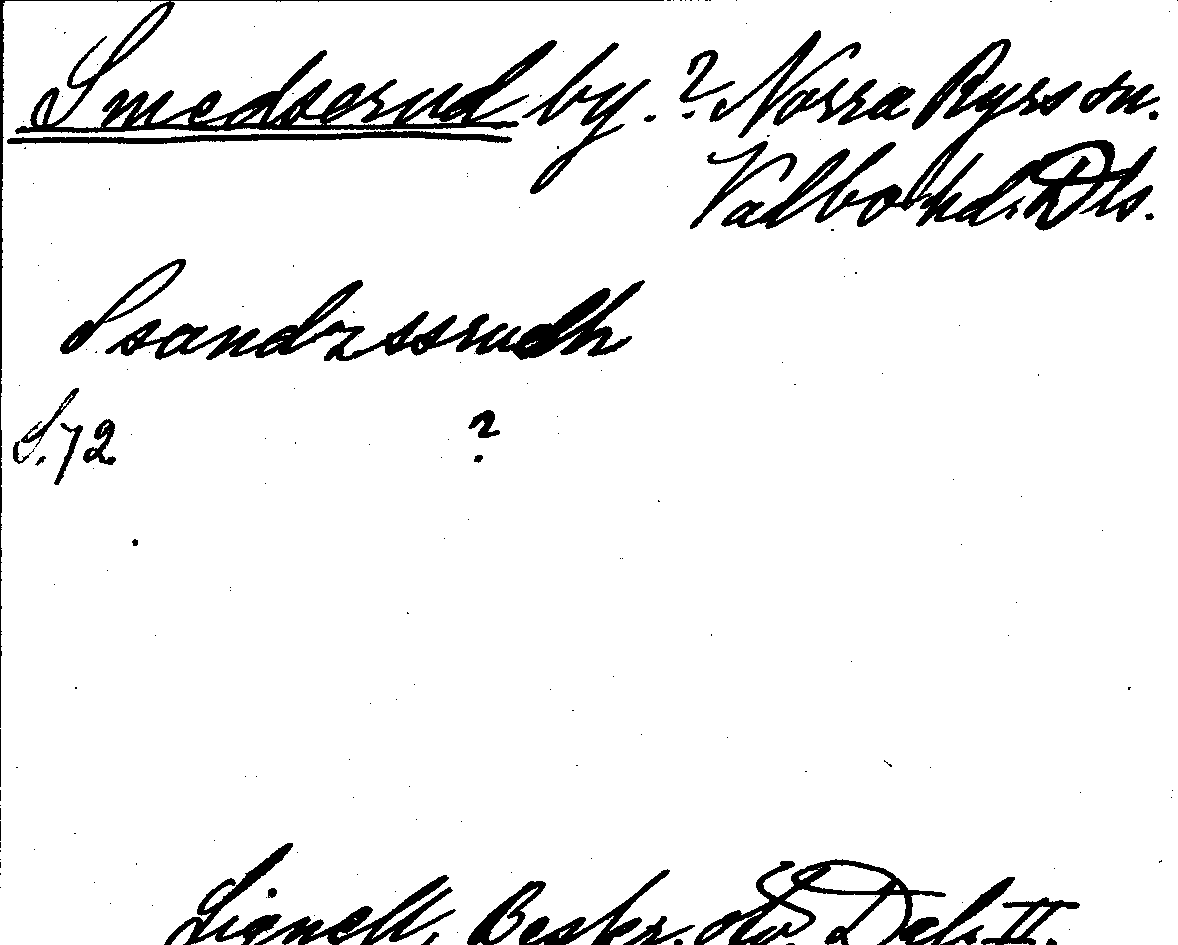 Smedserud by. ? Norra Ryrs sn.
Valbo hd. Dls.
Ssandzssrudh
S. 72 ?
Lignell, Beskr. öv. Dals. II.